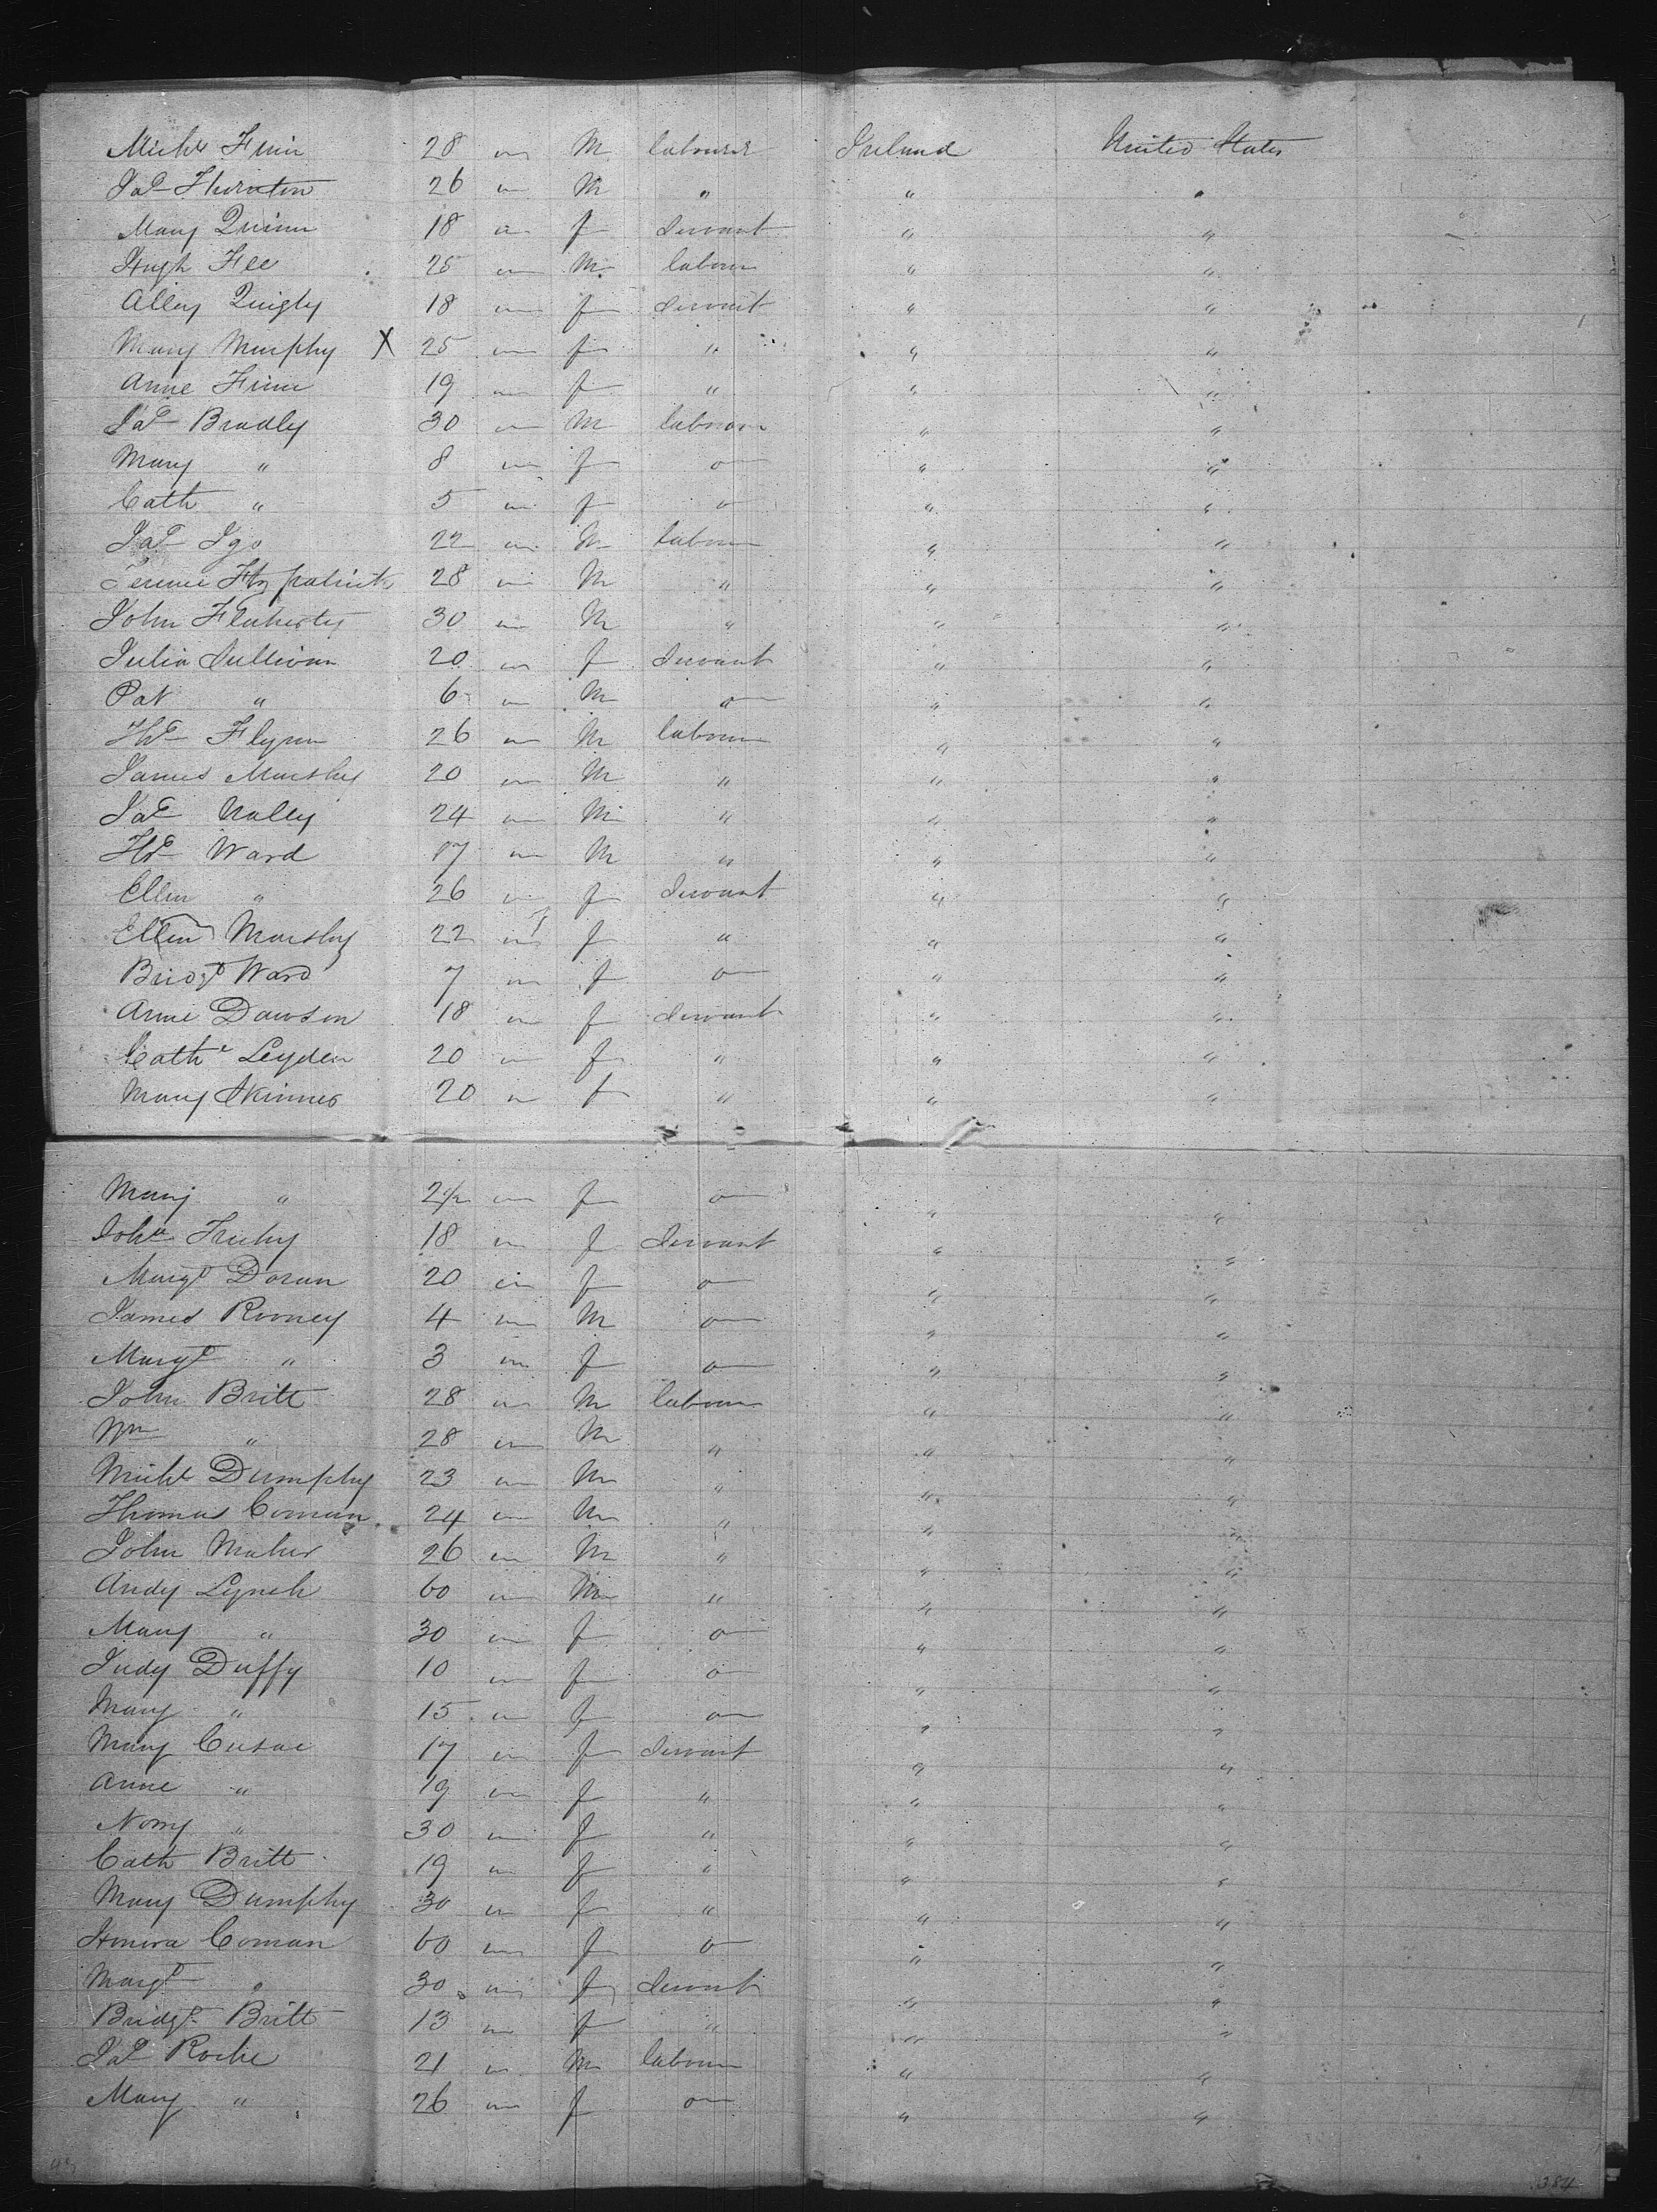 Michl Finn 28 M labourer Ireland United States
Jas Thornton 26 M " " "
Mary Quinn 18 f Servant " "
Hugh Fee 25 M labour " "
Alley Quigly 18 f Servant " "
Mary Murphy X 25 f " " "
Anne Finn 19 f " " "
Jas Bradly 30 M labour " "
Mary " 8 f " "
Cath " 5 f " "
Jas Igo 22 M labour " "
Fitzpatrick 28 M " " "
John Flaherty 30 M " " "
Julia Sullivan 20 f Servant " "
Pat " 6 M " "
Ths Flynn 26 M labour " "
James 20 M " " "
Jas Nally 24 M " " "
Ths Ward 17 M " " "
Ellen " 26 f Servant " "
Ellen 22 f " " "
Bridgt Ward 7 f " "
Anne Dawson 18 f Servant " "
Cathe Leyden 20 f " " "
Mary Skinner 20 f " " "
Mary " 2/12 f " "
18 f Servant " "
Margt Doran 20 f " "
James Rooney 4 M " "
Margt " 3 f " "
John Britt 28 M labour " "
Wm " 28 M " " "
Michl Dumphy 23 M " " "
Thomas Coman 24 M " " "
John Maher 26 M " " "
Andy Lynch 60 M " " "
Mary " 30 f " "
Judy Duffy 10 f " "
Mary " 15 f " "
Mary Cusac 17 f Servant " "
Anne " 19 f " " "
Norry " 30 f " " "
Cath Britt 19 f " " "
Mary Dumphy 30 f " " "
Honora Coman 60 f " "
Margt " 30 f Servant " "
Bridgt Britt 13 f " " "
Jas Roche 21 M labour " "
Mary " 26 f " "
384